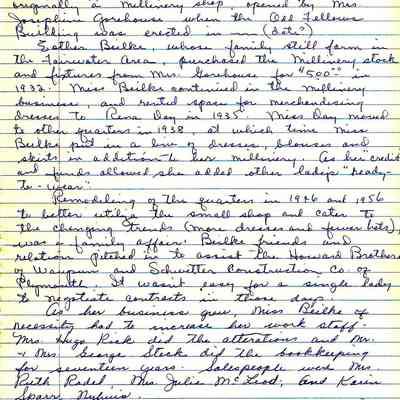 originally a Millinery shop, opened by Mrs.
Josephine Gorehouse when the Odd Fellows
Building was erected in — (date?)
Esther Beilke, whose family still farm in
the Fairwater Area, purchased the Millinery stock
and fixtures from Mrs. Gorehouse for $500.00 in
1932. Miss Beilke continued in the millinery
business, and rented space for merchandising
dresses to Reva Day in 1935. Miss Day moved
to other quarters in 1938, at which time Miss
Beilke put in a line of dresses, blouses and
skirts in addition to her millinery. As her credit
and funds allowed she added other ladies "ready-
to-wear".
Remodeling of the quarters in 1946 and 1956
to better utilize the small shop and cater to
the changing trends (more dresses and fewer hats),
was a family affair. Beilke friends and
relation "pitched in" to assist the Howard Brothers
of Waupun and Schwetter Construction Co. of
Plymouth. It wasn't easy for a single lady
to negotiate contracts in those days.
As her business grew, Miss Beilke of
necessity had to increase her work staff.
Mrs. Hugo Rick did the alterations and Mr.
+ Mrs. George Steck did the bookkeeping
for seventeen years. Salespeople were Mrs.
Ruth Radel, Mrs. Julia McLeod, and Karin
Sparr